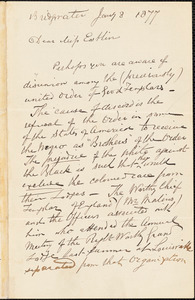 Bridgwater Jany 2 1877
Dear Miss Estlin
Perhaps you are aware of
dissension among the (previously)
united order of Good Templars -
The cause of discord is the
refusal of the Order in some
of the States of America to receive
the Negro as Brothers of the Order
The prejudice of the White against
the Black is such that they
exclude the coloured race from
their Lodges - The Worthy Chief
Templar of England (Mr Malins)
and the Officers associated with
him who attended the Annual
Meeting of the Right Worthy Grand
Lodge last Summer
separated from that Organization